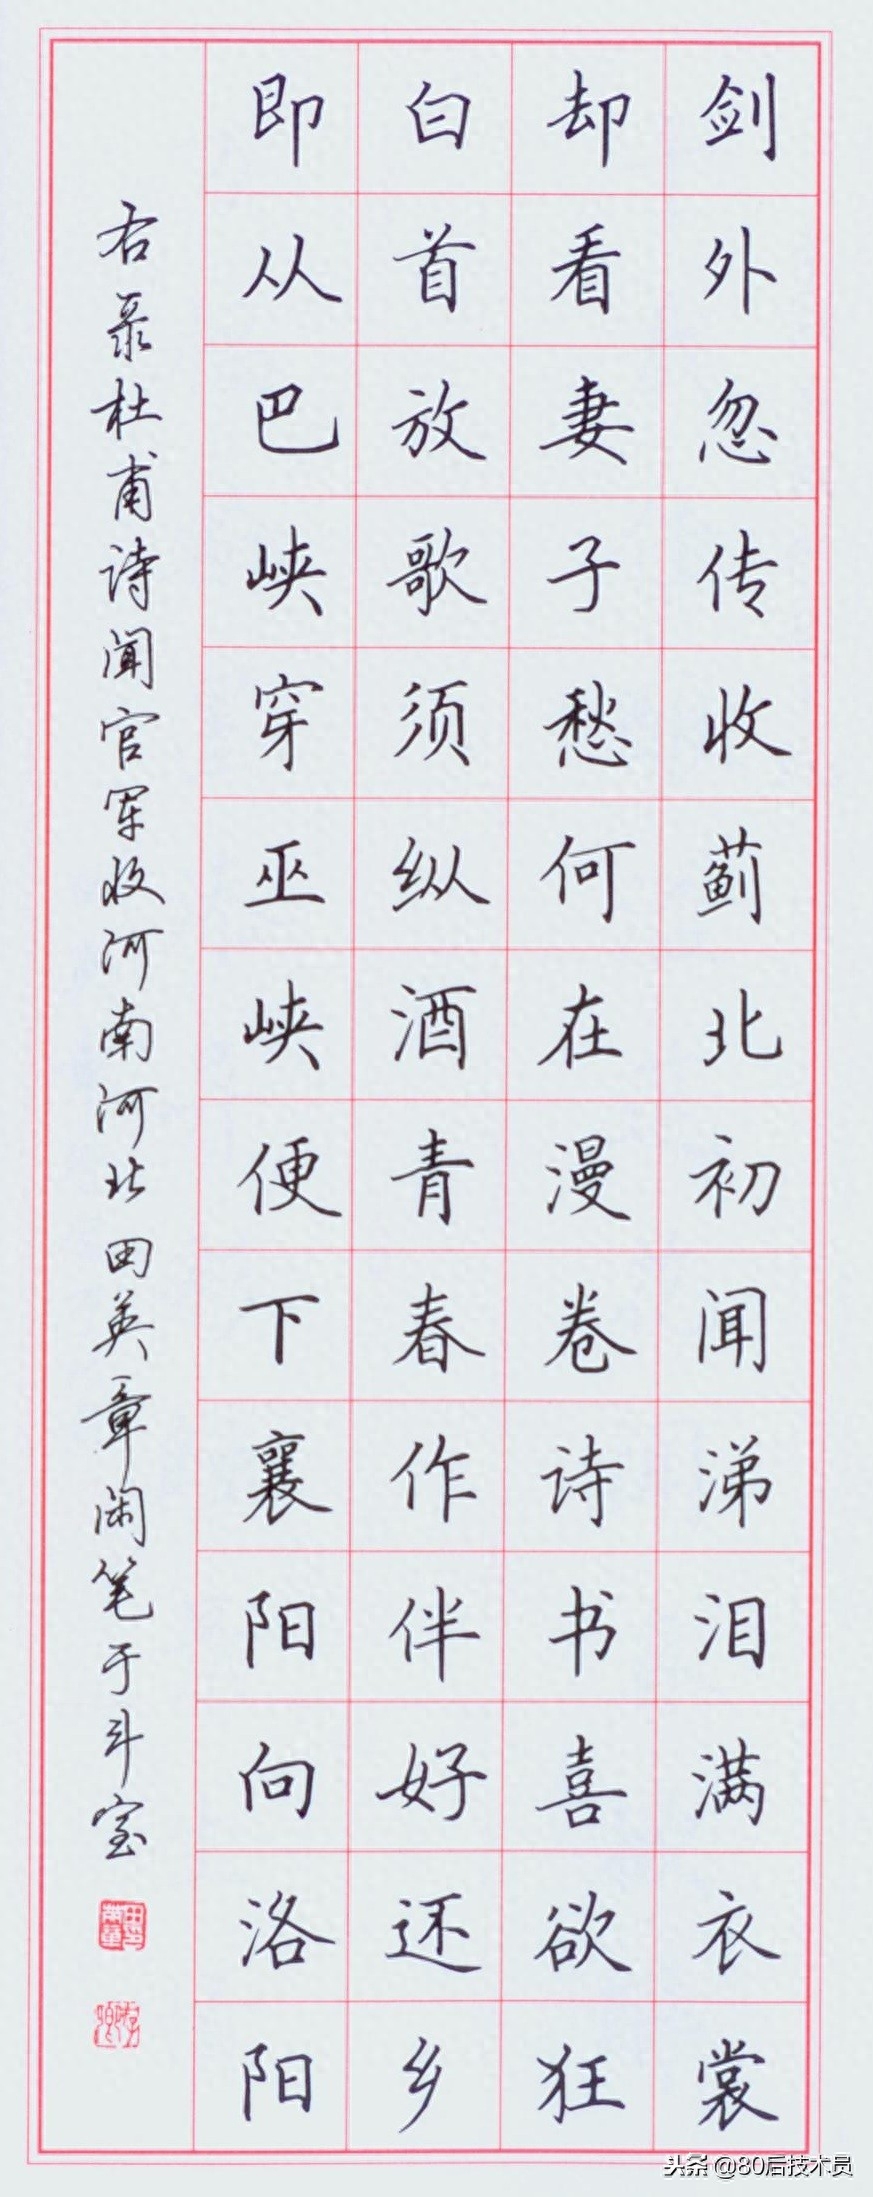 剑外忽传收蓟北初闻涕泪满衣裳
却看妻子愁何在漫卷诗书喜欲狂
白首放歌须纵酒青春作伴好还乡
即从巴峡穿巫峡便下襄阳向洛阳
右录杜甫诗闻官军收河南河北 田英章闲笔于斗室
田英章
头条 @80后技术员